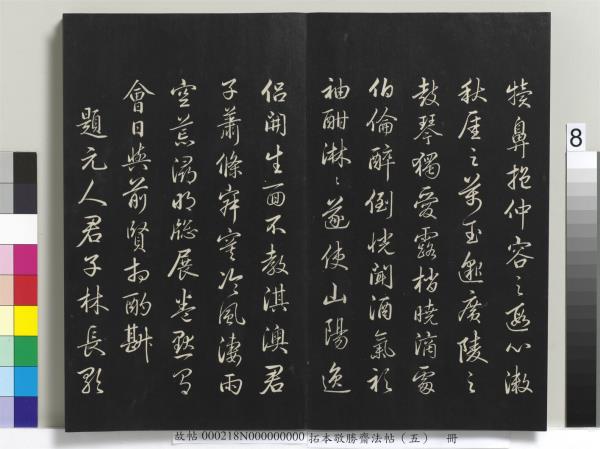 犢鼻挹仲容之逸心漱
秋厓之萬玉邀廣陵之
鼓琴獨愛露梢曉滴處
伯倫醉倒恍聞酒氣衫
袖酣淋〻遂使山陽逸
侣開生面不教淇澳君
子蕭條寂寞冷風淒雨
空荒明窗展卷默
會日與前賢相酬斟
題元人君子林長歌
8
故帖 000218N000000000 拓本敬勝齋法帖（五） 冊